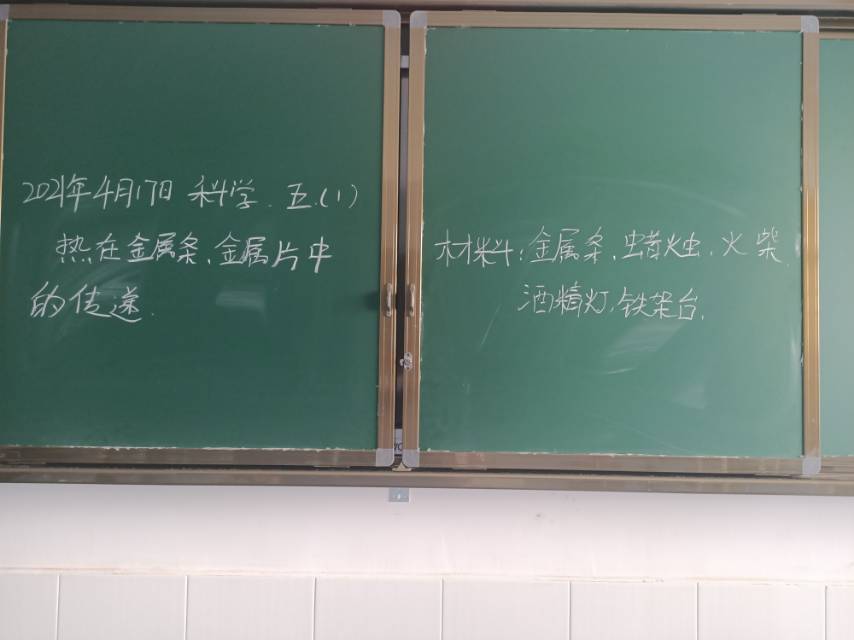 2021年4月17日 科学. 五.(1)
热在金属条、金属片中
的传递.
材料:金属条、蜡烛、火柴.
酒精灯、铁架台.